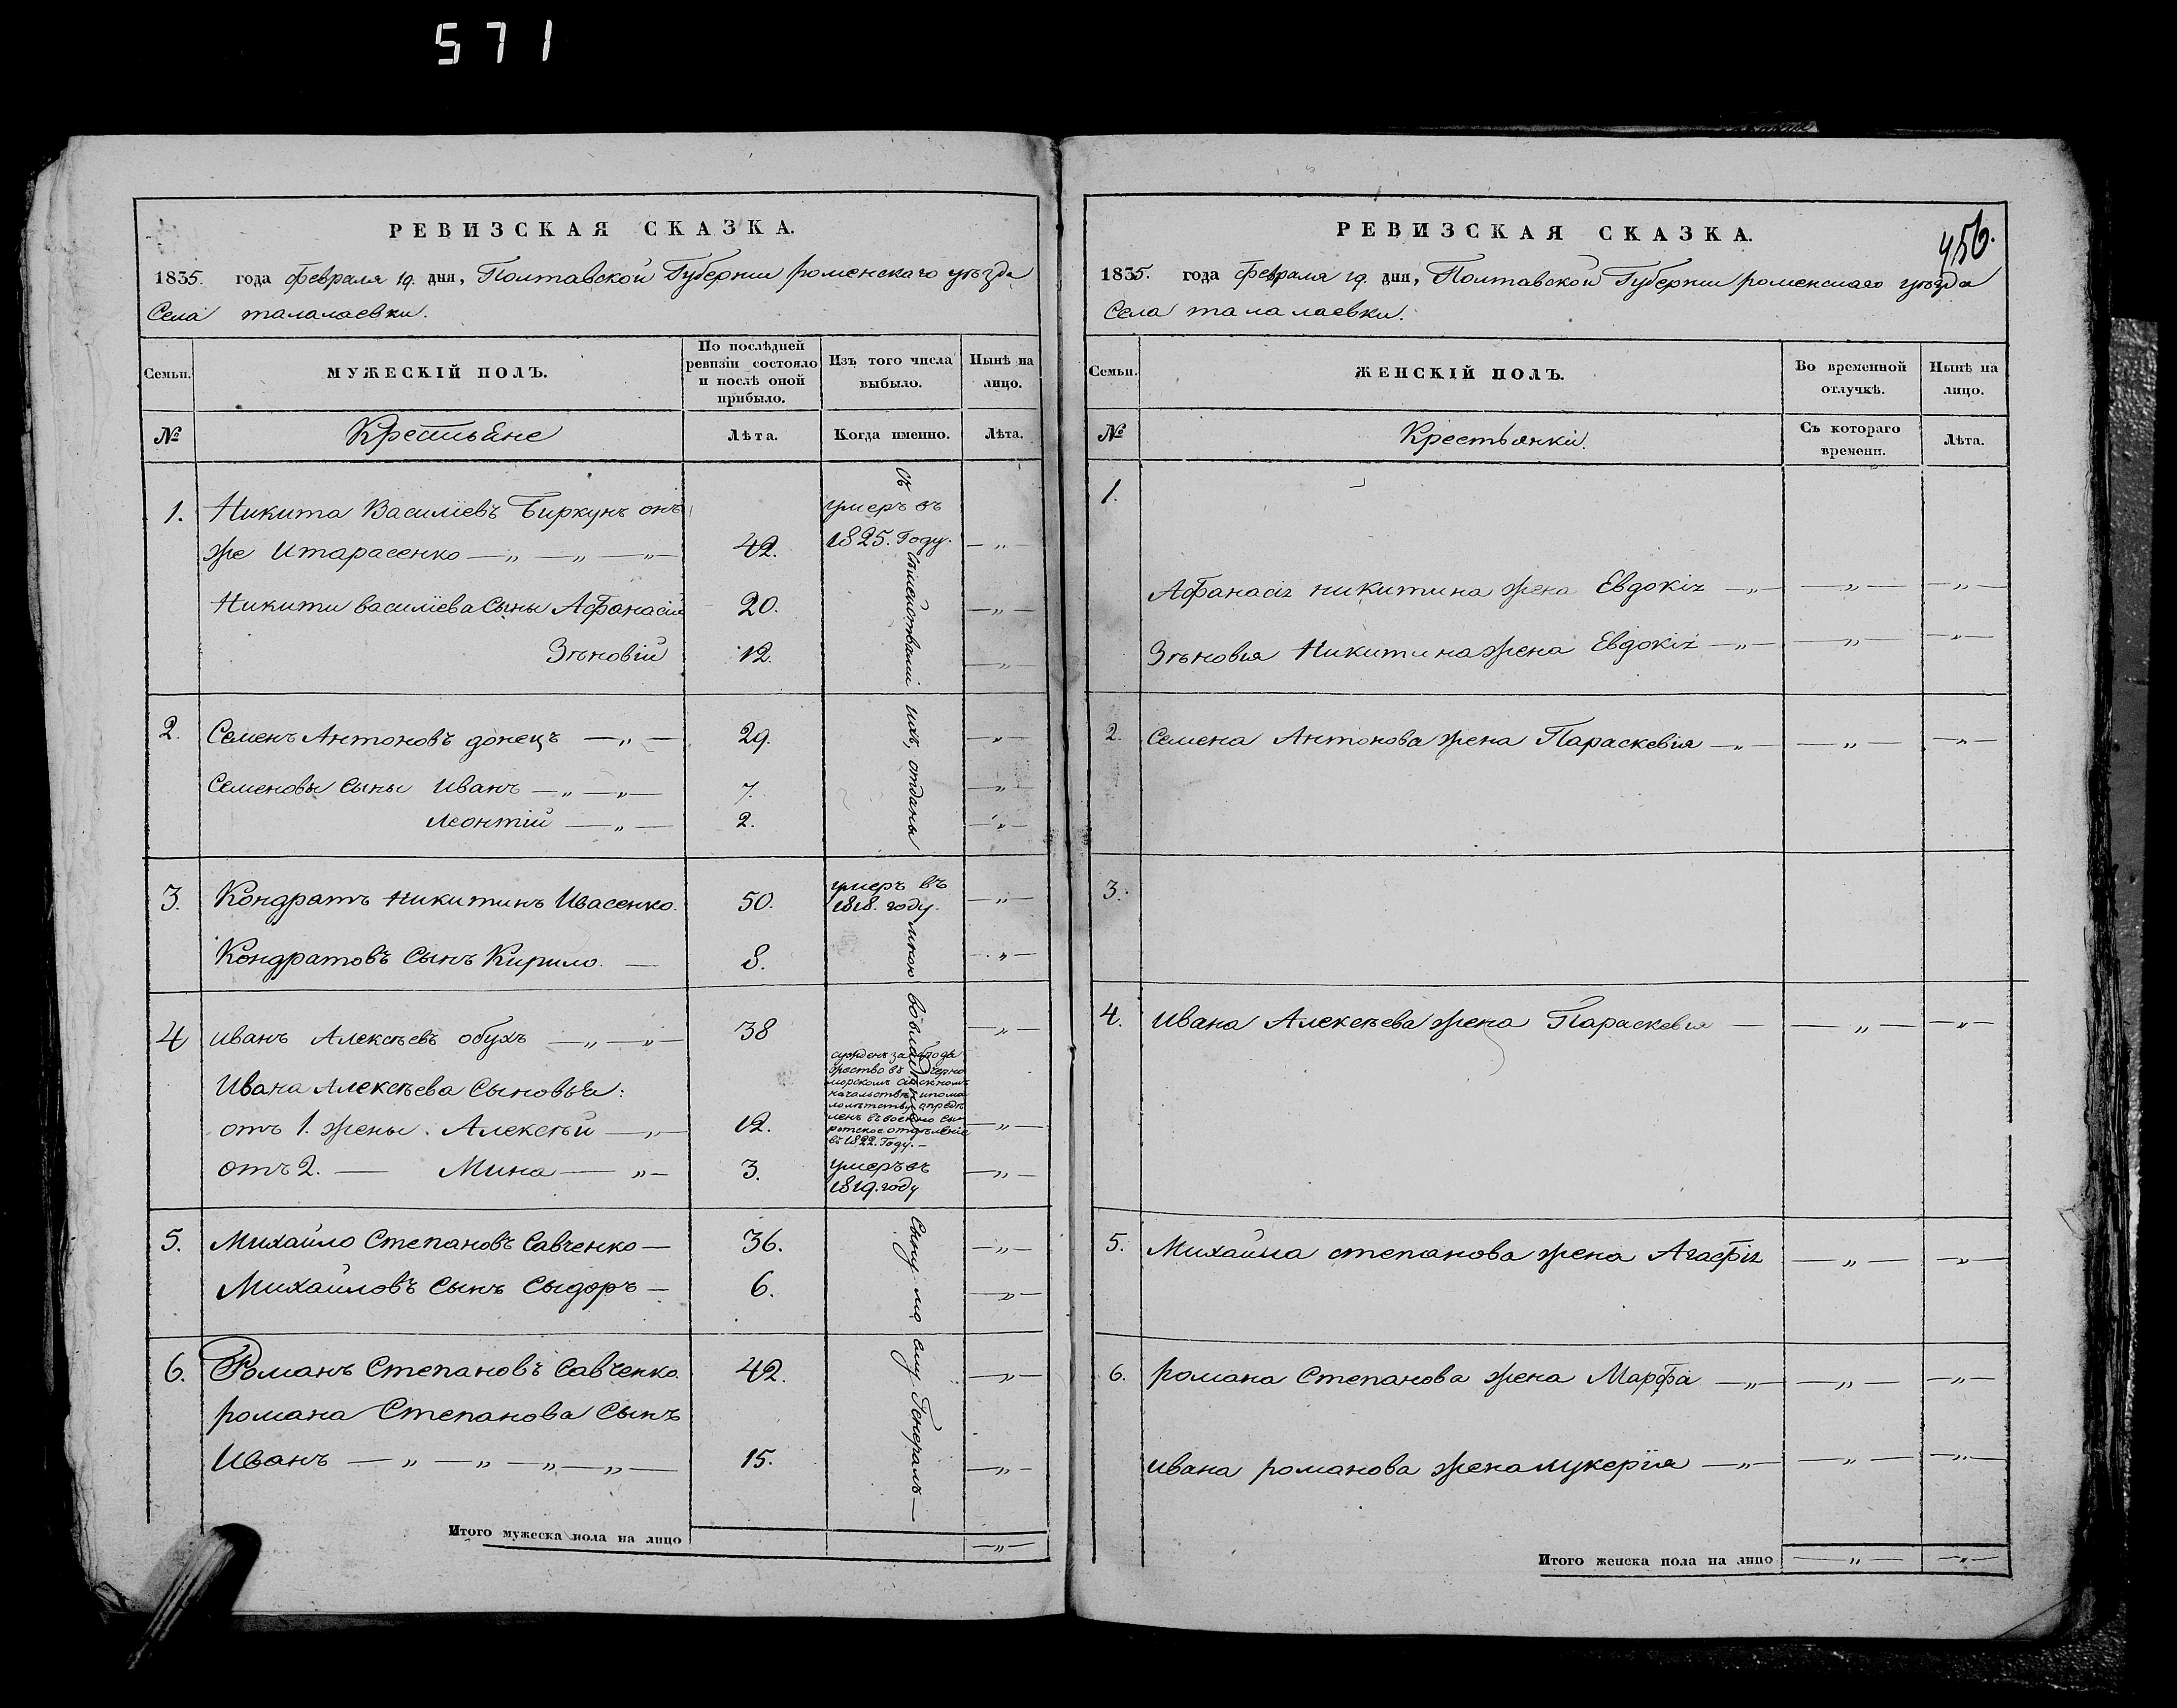 571
РЕВИЗСКАЯ СКАЗКА.
1835. года февраля 19. дня, Полтавской Губернии роменскаго уѣзда
Села талалаевки.
Семьи.
МУЖЕСКІЙ ПОЛЪ.
По послѣдней ревизіи состояло и послѣ оной прибыло.
Изъ того числа выбыло.
Нынѣ на лицо.
№
Крестьяне
Лѣта.
Когда именно.
Лѣта.
1. Никита Василіевъ Биркунъ онъ
же Итарасенко —„— —„— 42. умеръ въ 1825. Году. —„—
Никити василіева Сыны Афанасій 20. —„—
Зѣновій 12. —„—
2. Семенъ Антоновъ донецъ —„— 29. —„—
Семеновы сыны Иванъ —„—„— 7. —„—
Леонтій —„— 2. —„—
3. Кондратъ Никитинъ Ивасенко. 50. умеръ въ 1818. году. —„—
Кондратовъ Сынъ Кирило. — 8. —„—
4 Иванъ Алексѣевъ обухъ —„—„— 38 —„—
Ивана Алексѣева Сыновья:
отъ 1. жены. Алексѣй —„— 12. —„—
въ 1822. Году. —
отъ 2. — Мина —„— 3. умеръ въ 1819. году —„—
5. Михайло Степановъ Савченко — 36. —„—
Михайловъ сынъ Сыдоръ — 6. —„—
6. Романъ Степановъ Савченко. 42. —„—
романа Степанова Сынъ
Иванъ —„—„—„—„— 15. —„—
съ семействами ихъ, отданы мною во владѣніе Сыну моему Генералъ —
Итого мужеска пола на лицо —„—
РЕВИЗСКАЯ СКАЗКА.
456.
1835. года февраля 19. дня, Полтавской Губернии роменскаго уѣзда
Села талалаевки.
Семьи.
ЖЕНСКІЙ ПОЛЪ.
Во временной отлучкѣ.
Нынѣ на лицо.
№
Крестьянки.
Съ котораго времени.
Лѣта.
1.
Афанасія никитина жена Евдокія —„— —„— —„—
Зѣновія Никитина жена Евдокія —„— —„— —„—
2. Семена Антонова жена Параскевія —„— —„— —„—
3.
4. Ивана Алексѣева жена Параскевія — —„— —„—
5. Михайла степанова жена Агафія —„— —„—
6. романа Степанова жена Марфа —„— —„— —„—
ивана романова жена лукерія —„— —„— —„—
Итого женска пола на лицо —„— —„—